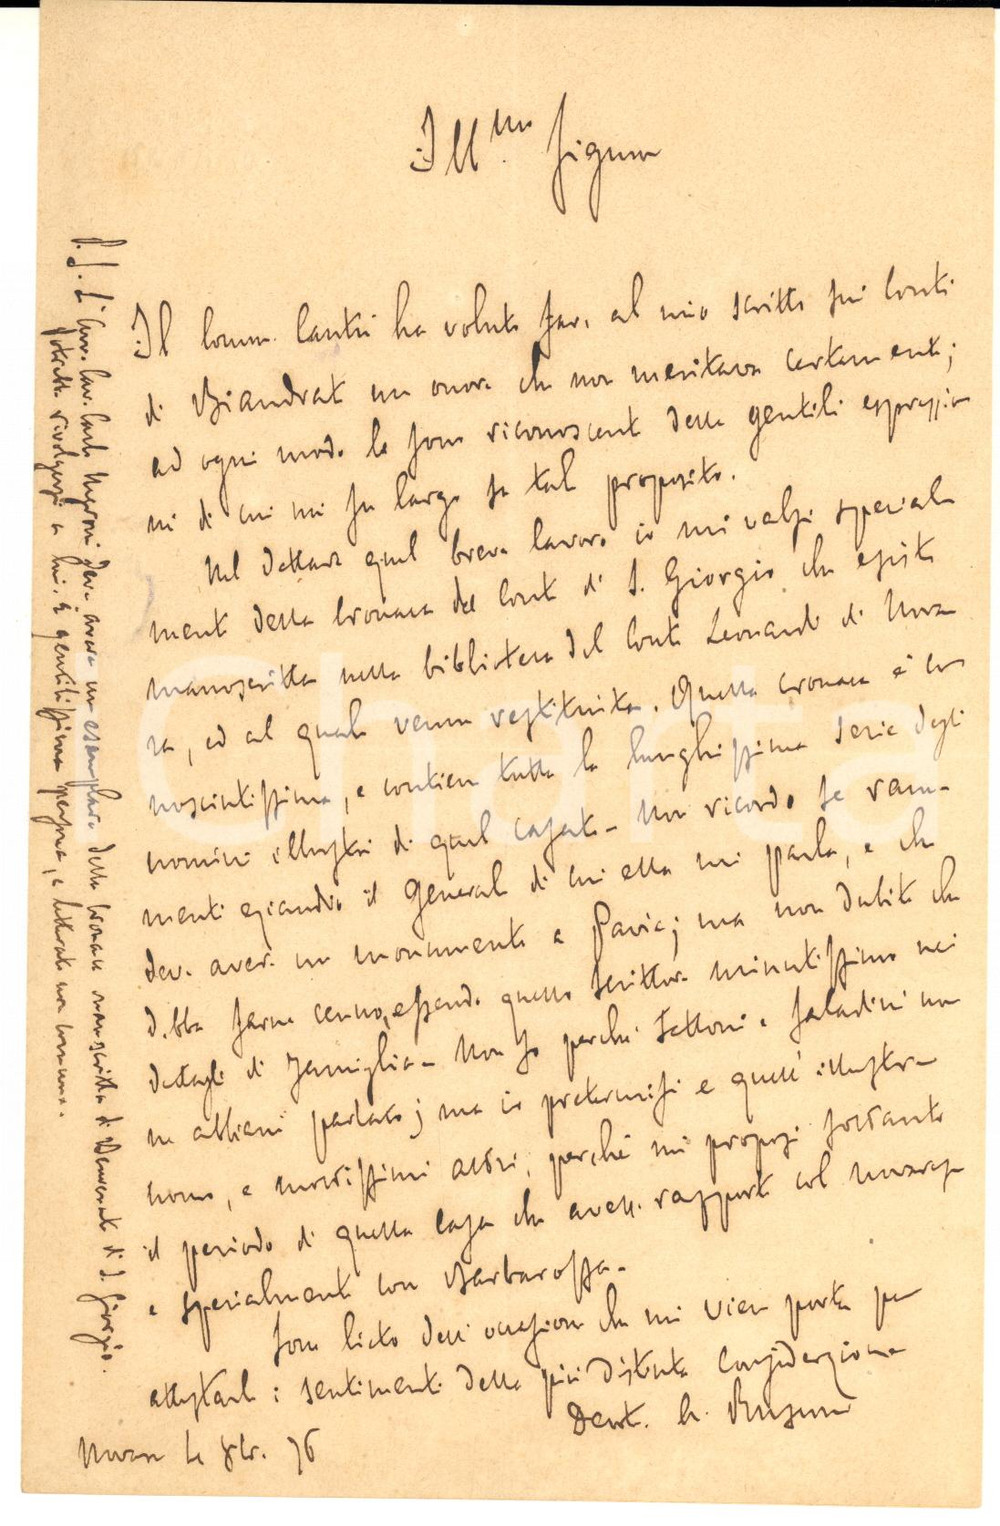 Ill.mo Signore
Il Comm. Cantù ha voluto fare al mio scritto sui Conti
di Biandrate un onore che non meritava certamente;
ad ogni modo le sono riconoscente delle gentili espressio
ni di cui mi fu largo su tal proposito.
Nel dettare quel breve lavoro io mi valsi special
mente della Cronaca del Conte di S. Giorgio che esiste
manoscritta nella biblioteca del Conte Leonardi di Nova
ra, ed al quale venne restituita. Quella cronaca è co
nosciutissima, e contiene tutta la lunghissima serie degli
uomini illustri di quel casato - Non ricordo se ram-
menti eziandio il Generale di cui ella mi parla, e che
deve avere un monumento a Pavia; ma non dubito che
debba farne cenno, essendo quello scrittore minutissimo nei
dettagli di famiglia - Non so perchè Tettoni e Saladini non
ne abbiano parlato; ma io pretermisi e quell'illustre
nome, e moltissimi altri, perché mi proposi soltanto
il periodo di quella casa che avesse rapporti col Novarese
e specialmente con Barbarossa -
Sono lieto dell'occasione che mi viene porta per
attestarle i sentimenti della più distinta considerazione
Devot. A. Rusconi
Novara 4 8br. 76
P. S. L'Avv. Cav. Carlo Negroni deve avere un esemplare della Cronaca manoscritta di Benvenuto di S. Giorgio.
potrebbe rivolgersi a lui. È gentilissima persona, e letterato non comune.
Charta